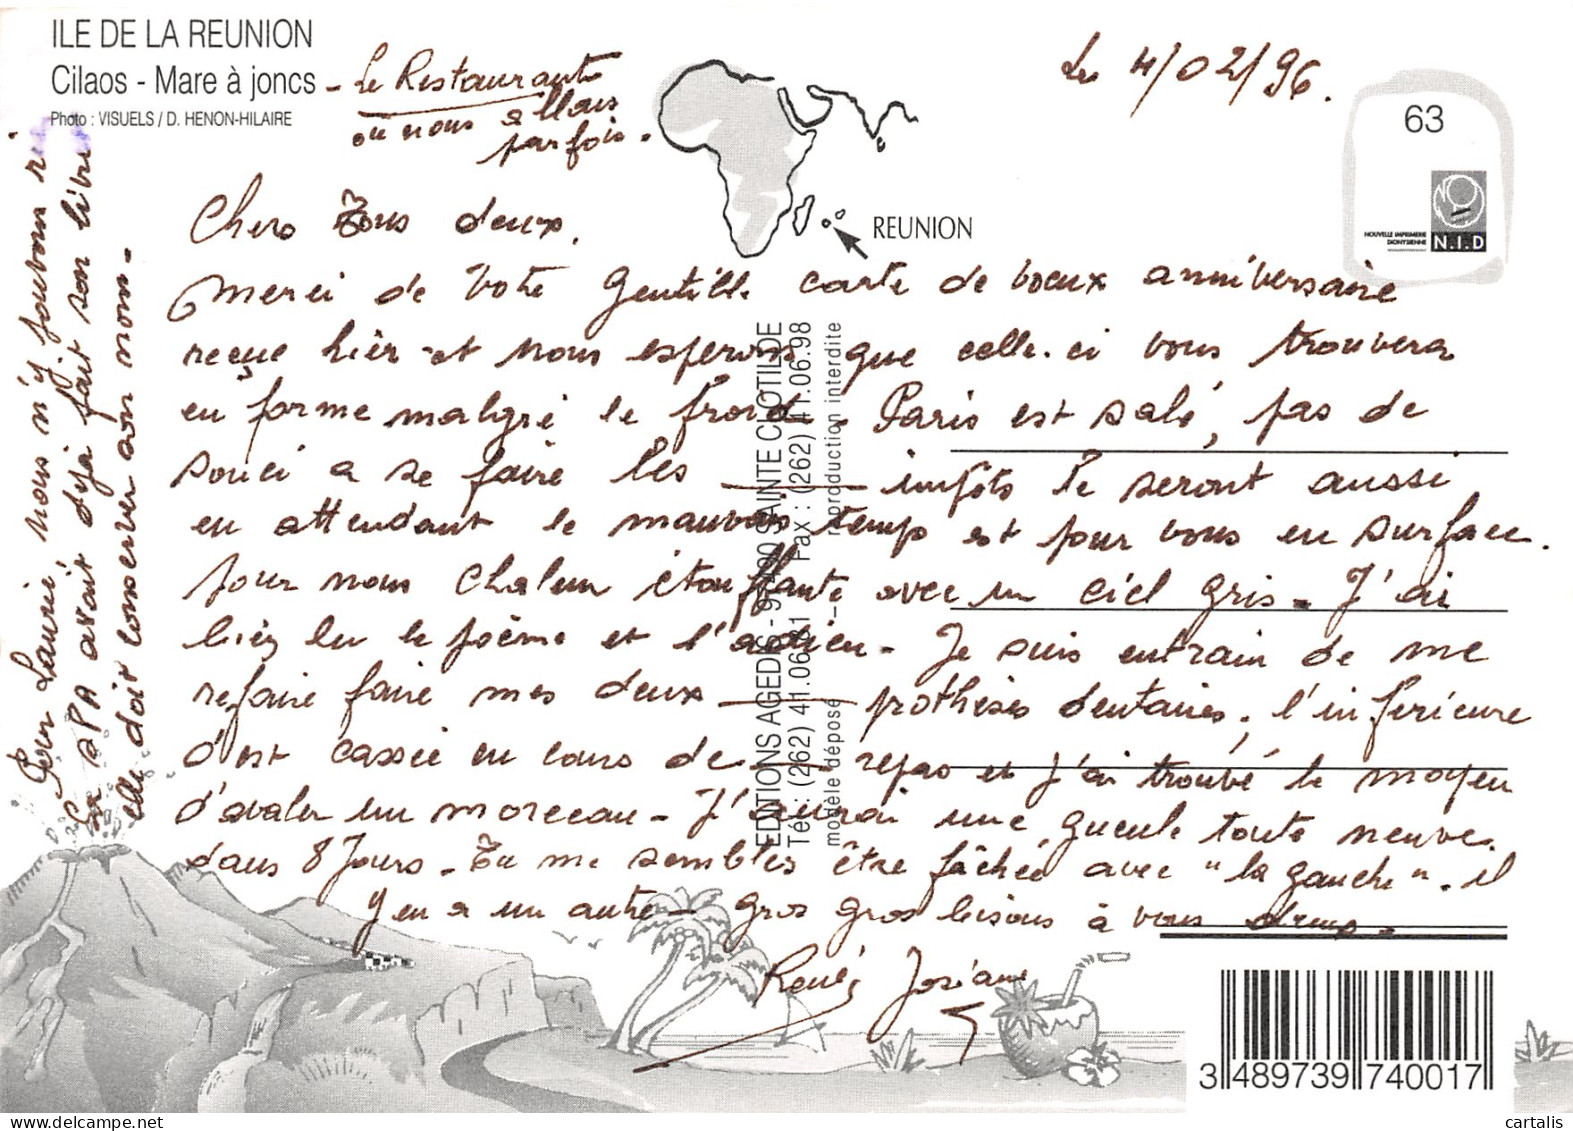 ILE DE LA REUNION
Cilaos - Mare à joncs - Le Restaurant
Photo : VISUELS / D. HENON-HILAIRE
ou nous allons
parfois.
Le 4/02/96.
63
NOUVELLE IMPRIMERIE
DIONYSIENNE
N.I.D
REUNION
Chers Tous deux,
Merci de votre gentille carte de voeux anniversaire
reçue hier et nous esperons que celle-ci vous trouvera
en forme malgré le froid. Paris est salé, pas de
souci a se faire les impôts le seront aussi
en attendant le mauvais temps est pour vous en surface.
pour nous chaleur étouffante avec un ciel gris. J'ai
bien lu le poème et l'adieu. Je suis entrain de me
refaire faire mes deux prothèses dentaires, l'inferieure
s'est cassée en cours de repas et j'ai trouvé le moyen
d'avaler un morceau. J'aurai une gueule toute neuve
dans 8 Jours. Tu me sembles être fâchée avec "la gauche". il
y en a un autre. gros gros bisous à vous deux.
René Josiane
Pour Laurie, nous n'y pouvons
la SPA avait deja fait son livre
elle doit conserver son nom.
EDITIONS AGEDIS - SAINTE CLOTILDE
Tél. : (262) 41.06.81 – Fax : (262) 41.06.98
modèle déposé reproduction interdite
3 489739 740017
cartalis